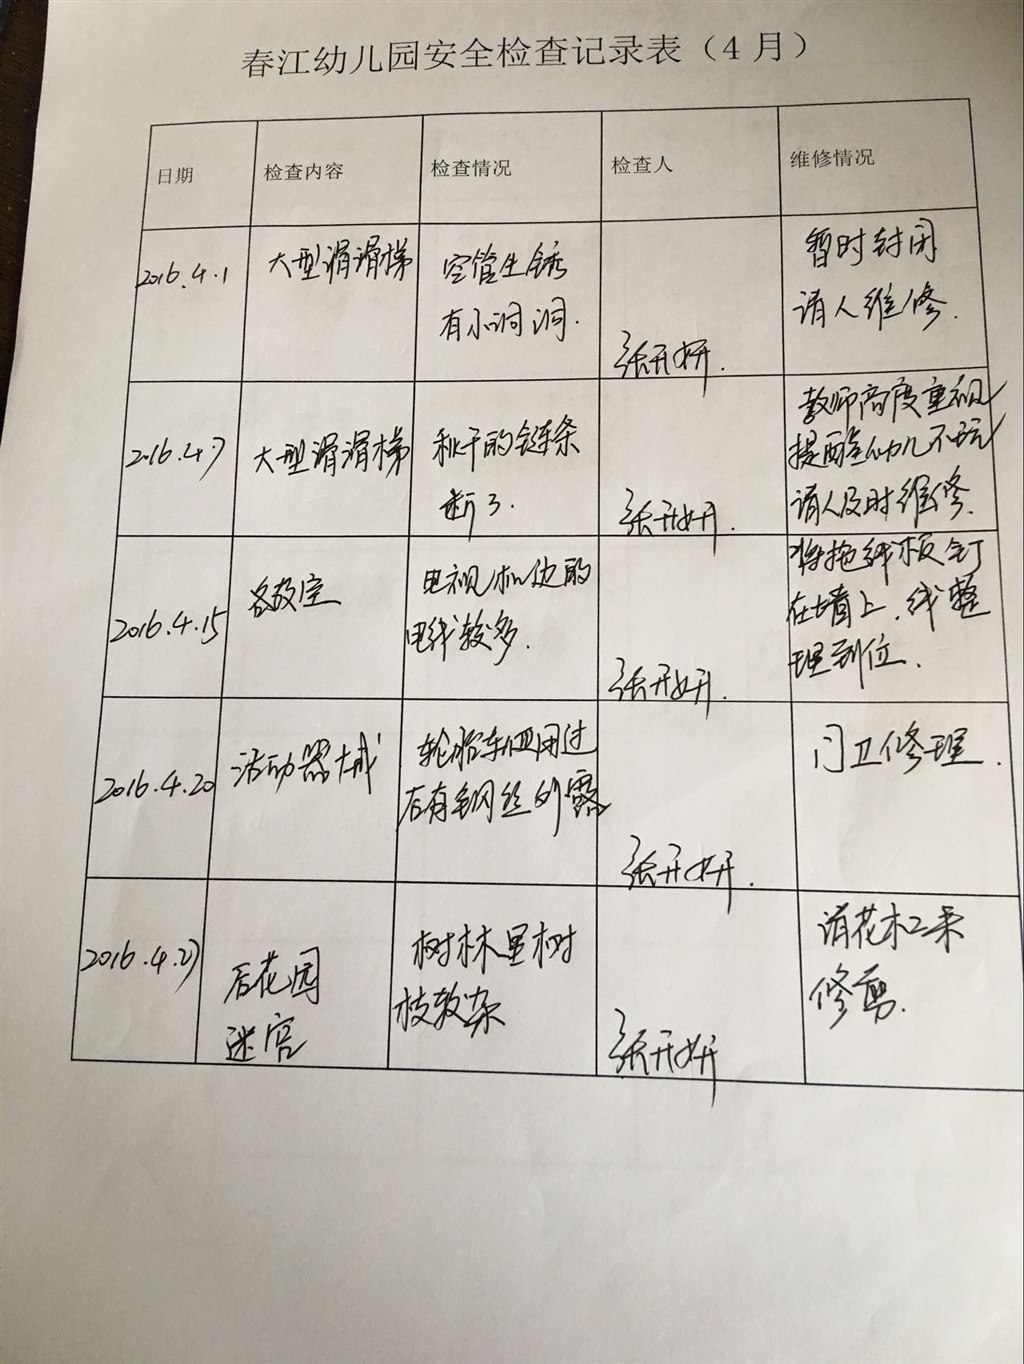 春江幼儿园安全检查记录表（4月）
日期 检查内容 检查情况 检查人 维修情况
2016.4.1 大型滑滑梯 空管生锈 暂时封闭
有小洞洞. 请人维修.
张开妍.
2016.4.7 大型滑滑梯 秋千的链条 教师高度重视
断了. 提醒幼儿不玩
张开妍. 请人及时维修.
2016.4.15 各教室 电视机边的 将拖线板钉
电线较多. 在墙上.线整
张开妍. 理到位.
2016.4.20 活动器械 轮胎车使用过 门卫修理.
后有钢丝外露
张开妍.
2016.4.27 后花园 树林里树 请花木工来
迷宫 枝较杂 修剪.
张开妍